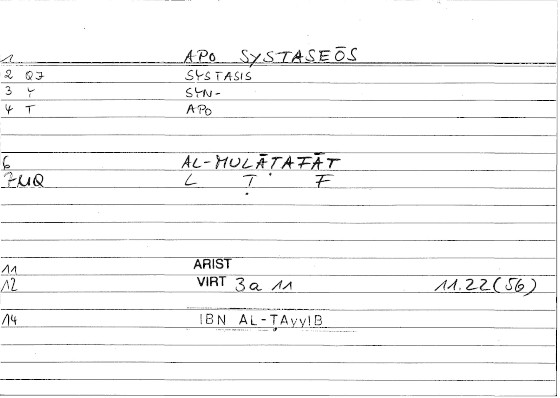 1 APO SYSTASEŌS
2 QJ SYSTASIS
3 Y SYN-
4 T APO
6 AL-MULĀṬAFĀT
7 MQ L Ṭ F
11 ARIST
12 VIRT 3a 11 11.22(56)
14 IBN AL-ṬAyyIB